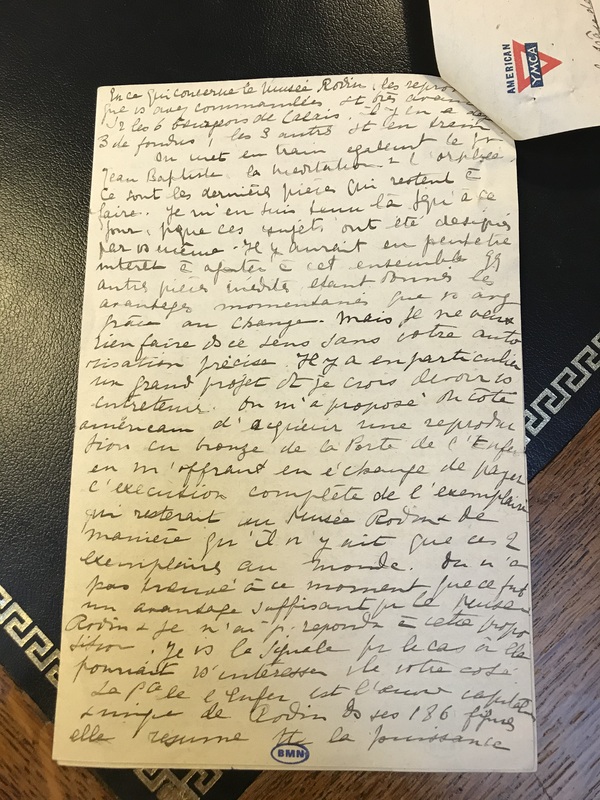 AMERICAN
YMCA
En ce qui concerne le Musée Rodin, les repro
que vs avez commandées st très avan
Sr les 6 bourgeois de Calais, il y en a
3 de fondus, les 3 autres st en train
On met en train egalement le St
Jean Baptiste, la meditation & l'orphée.
Ce sont les dernières pièces qui restent à
faire. Je m'en suis tenu là jsqu'à ce
jour, pque ces sujets ont été désignés
par vs même. Il y aurait eu peutetre
intéret à ajouter à cet ensemble qq
autres pièces inédites étant donnés les
avantages momentanés que vs avez
grâce au change. Mais je ne veux
rien faire ds ce sens sans votre auto
risation précise. Il y a en particulier
un grand projet dt je crois devoir vs
entretenir. On m'a proposé du coté
américain d'acquérir une reproduc
tion en bronze de la Porte de l'Enfer
en m'offrant en échange de payer
l'exécution complète de l'exemplaire
qui resterait au Musée Rodin de
manière qu'il n'y ait que ces 2
exemplaires au monde. On n'a
pas trouvé à ce moment que ce fut
un avantage suffisant pr le Musée
Rodin & je n'ai p. répondu à cette propo
sition. Je vs la signale pr le cas où elle
pourrait vs intéresser de votre coté.
La Pte de l'Enfer est l'œuvre capitale
& unique de Rodin. Ds ses 186 figures
elle résume tte la puissance
BMN